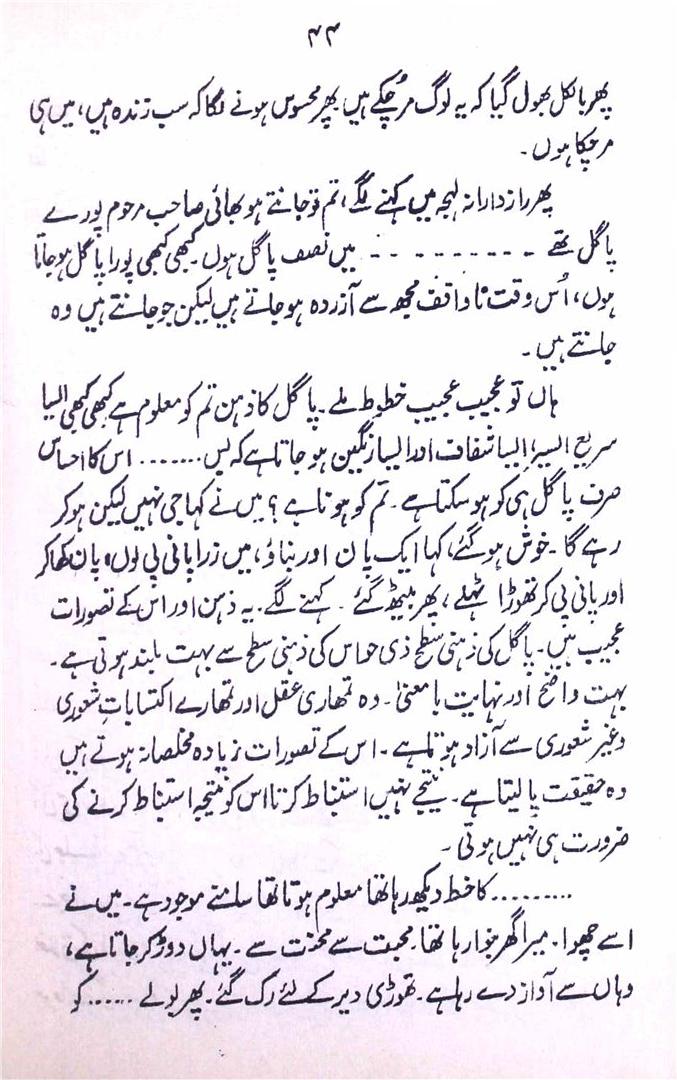 ۴۴
پھر بالکل بھول گیا کہ یہ لوگ مر چکے ہیں پھر محسوس ہونے لگا کہ سب زندہ ہیں، میں ہی
مر چکا ہوں۔
پھر رازدارانہ لہجہ میں کہنے لگے، تم تو جانتے ہو بھائی صاحب مرحوم پورے
پاگل تھے ۔ ۔ ۔ ۔ ۔ ۔ ۔ ۔ ۔ ۔ میں نصف پاگل ہوں۔ کبھی کبھی پورا پاگل ہو جاتا
ہوں، اُس وقت ناواقف مجھ سے آزردہ ہو جاتے ہیں لیکن جو جانتے ہیں وہ
جانتے ہیں۔
ہاں تو عجیب عجیب خطوط ملے۔ پاگل کا ذہن تم کو معلوم ہے کبھی کبھی ایسا
سریع السیر، ایسا شفاف اور ایسا رنگین ہو جاتا ہے کہ بس ....... اس کا احساس
صرف پاگل ہی کو ہو سکتا ہے۔ تم کو ہوتا ہے؟ میں نے کہا جی نہیں لیکن ہو کر
رہے گا۔ خوش ہو گئے، کہا ایک پان اور بناؤ، میں ذرا پانی پی لوں، پان کھا کر
اور پانی پی کر تھوڑا ٹہلے، پھر بیٹھ گئے۔ کہنے لگے۔ یہ ذہن اور اس کے تصورات
عجیب ہیں۔ پاگل کی ذہنی سطح ذی حواس کی ذہنی سطح سے بہت بلند ہوتی ہے۔
بہت واضح اور نہایت بامعنیٰ۔ وہ تمھاری عقل اور تمھارے اکتسابات شعوری
و غیر شعوری سے آزاد ہوتا ہے۔ اس کے تصورات زیادہ مخلصانہ ہوتے ہیں
وہ حقیقت پا لیتا ہے۔ نتیجے نہیں استنباط کرتا اس کو نتیجہ استنباط کرنے کی
ضرورت ہی نہیں ہوتی۔
......... کا خط دیکھ رہا تھا معلوم ہوتا تھا سامنے موجود ہے۔ میں نے
اسے چھوا۔ میرا گھر بنوا رہا تھا۔ محبت سے محنت سے۔ یہاں دوڑ کر جاتا ہے،
وہاں سے آواز دے رہا ہے۔ تھوڑی دیر کے لئے رک گئے۔ پھر بولے ...... کو